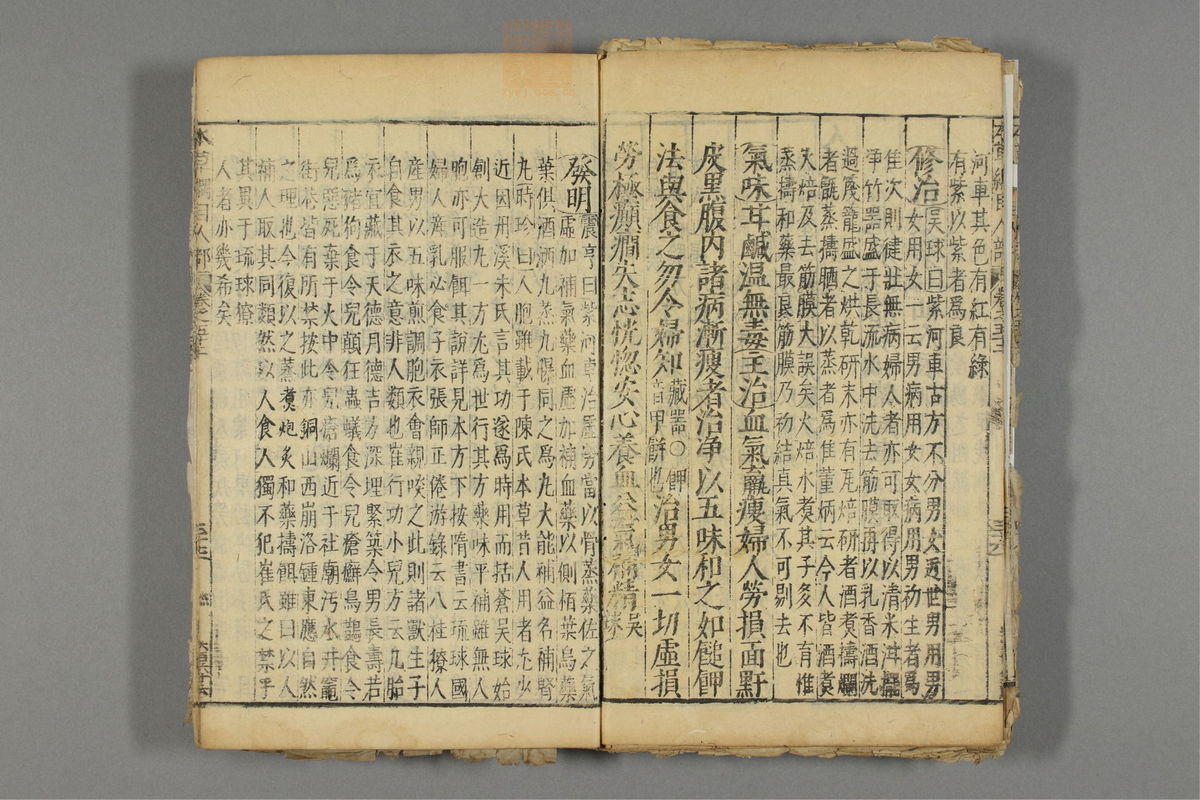 河車其色有紅有綠
有紫以紫者爲良
修治吳球曰紫河車古方不分男女近世男用男
女用女一云男病用女女病用男初生者爲
佳次則健壯無病婦人者亦可取得以清米泔擺
淨竹器盛于長流水中洗去筋膜再以乳香酒洗
過篾籠盛之烘乾研末亦有瓦焙研者酒煑擣爛
者甑蒸擣晒者以蒸者爲佳董炳云今人皆酒煑
火焙及去筋膜大誤矣火焙水煑其子多不育惟
蒸擣和藥最良筋膜乃初結真氣不可剔去也
氣味甘鹹温無毒主治血氣羸瘦婦人勞損面䵟
皮黑腹内諸病漸瘦者治淨以五味和之如䭔䭅
法與食之勿令婦知藏器〇䭅
音甲餅也治男女一切虛損
勞極癲癇失志恍惚安心養血益氣補精吳球
發明震亨曰紫河車治虛勞當以骨蒸藥佐之氣
虛加補氣藥血虛加補血藥以側栢葉烏藥
葉俱酒洒九蒸九曝同之爲丸大能補益名補腎
丸時珍曰人胞雖載于陳氏本草昔人用者尤少
近因丹溪朱氏言其功遂爲時用而括蒼吳球始
創大造丸一方尤爲世行其方藥味平補雖無人
胞亦可服餌其説詳見本方下按隋書云琉球國
婦人產乳必食子衣張師正倦游錄云八桂獠人
產男以五味煎調胞衣會親啖之此則諸獸生子
自食其衣之意非人類也崔行功小兒方云凡胎
衣宜藏于天德月德吉方深埋緊築令男長壽若
爲豬狗食令兒顛狂蟲蟻食令兒瘡癬鳥鵲食令
兒惡死棄于火中令兒瘡爛近于社廟污水井竈
街巷皆有所禁按此亦銅山西崩洛鍾東應自然
之理也今復以之蒸煑炮炙和藥擣餌雖曰以人
補人取其同類然以人食人獨不犯崔氏之禁乎
其異于琉球獠
人者亦幾希矣